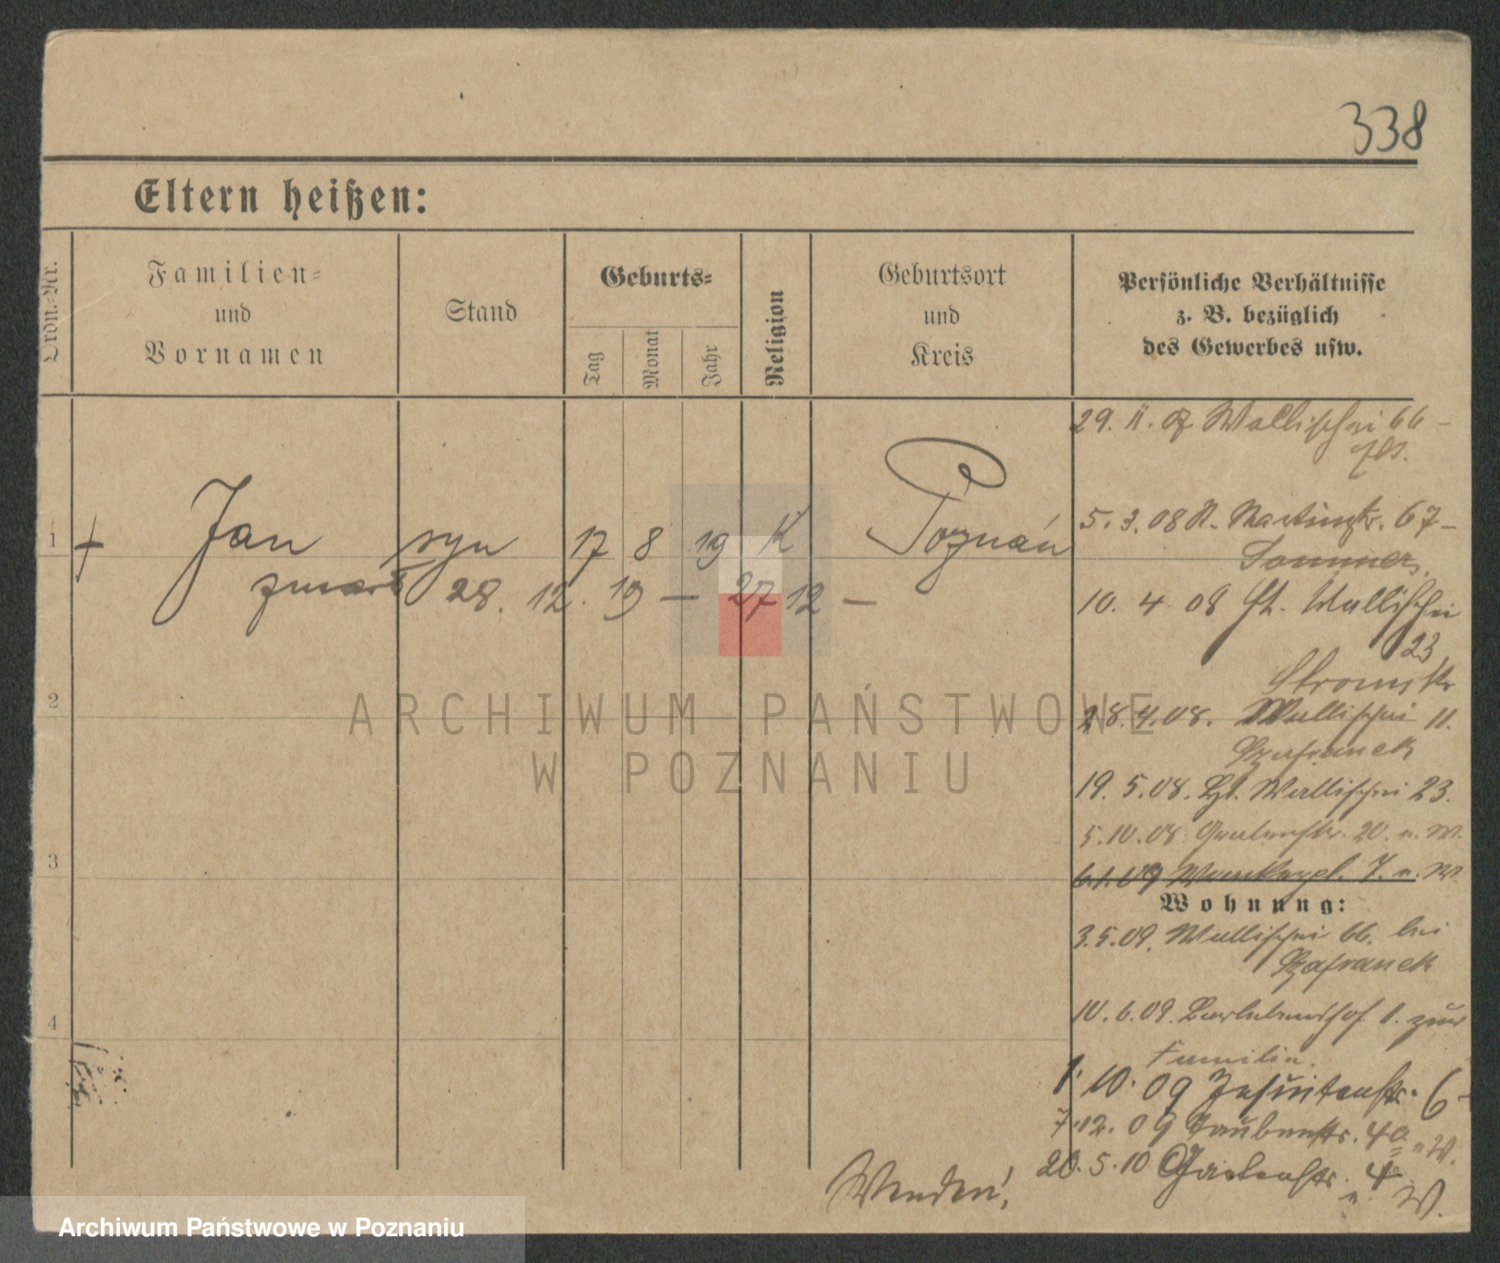 338
Eltern heißen:
Ordn.-Nr.
Familien-
und
Vornamen
Stand
Geburts-
Tag
Monat
Jahr
Religion
Geburtsort
und
Kreis
Persönliche Verhältnisse
z. B. bezüglich
des Gewerbes usw.
29. 11. 07 Wallischei 66 -
1 + Jan syn 17 8 19 K Poznań
zmarł 28. 12. 19 - 27 12 -
5. 3. 08 St. Martinstr. 67 -
Sommer.
10. 4. 08 Wallischei
23
28. 4. 08. Wallischei 11.
Szafranek
19. 5. 08. Wallischei 23.
5. 10. 08. 20. n. W.
6. 1. 09 7. n. W.
2
3
4
Wohnung:
3. 5. 09. Wallischei 66. bei
Szafranek
10. 6. 09. 1. zur
Familie.
1. 10. 09 Jesuitenstr. 6 -
7. 12. 09 Taubenstr. 4a n W.
20. 5. 10 4 n W.
Wenden!
ARCHIWUM PAŃSTWOWE
W POZNANIU
Archiwum Państwowe w Poznaniu